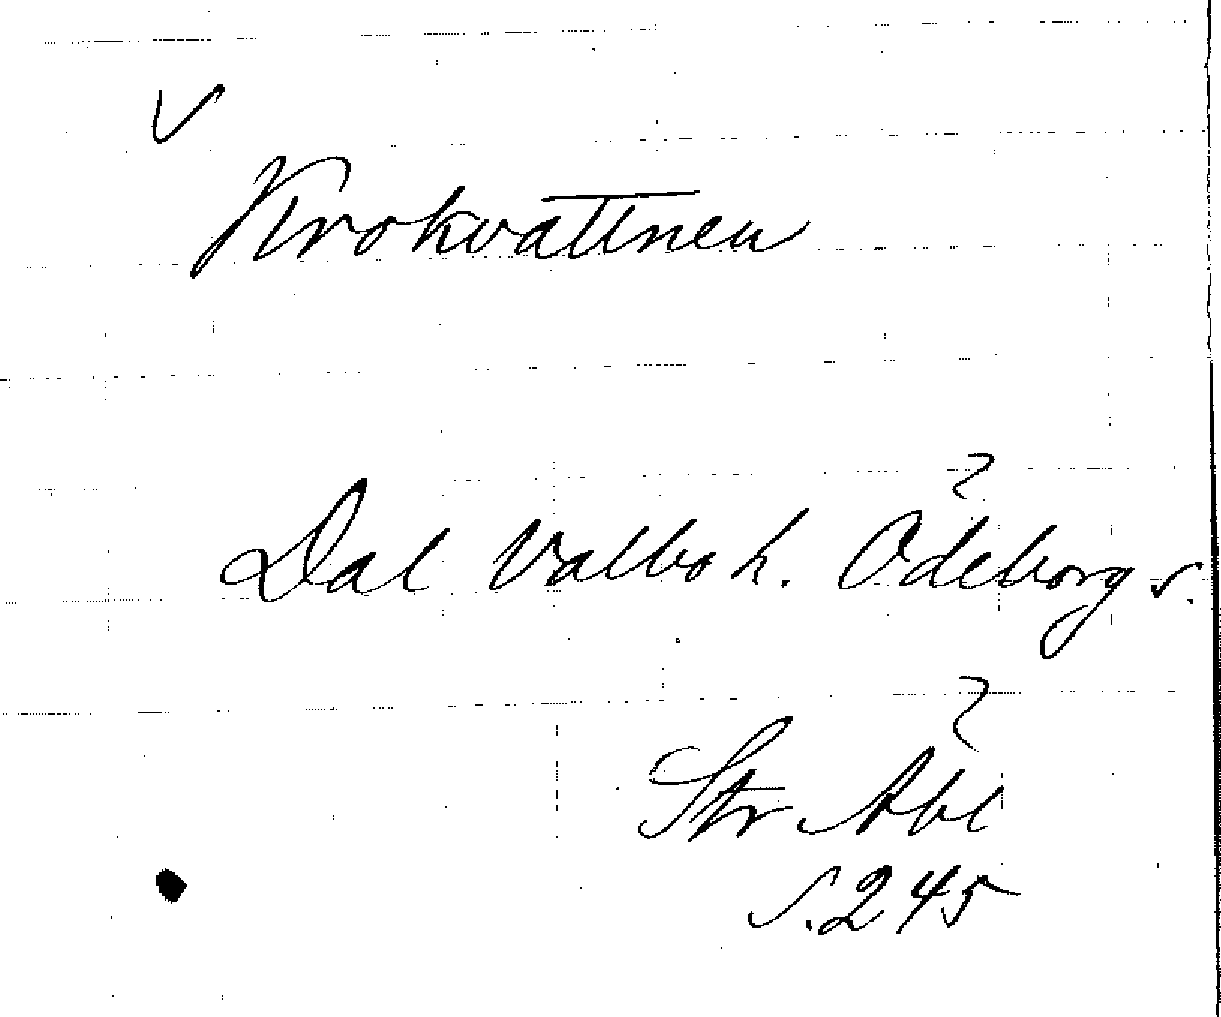 V
Krokvattnen
Dal Valbo h. Ödeborg s.
Str Abl
s. 245